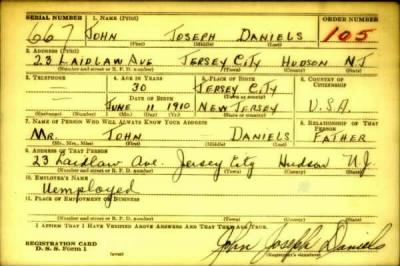 SERIAL NUMBER 1. NAME (Print) ORDER NUMBER
667 JOHN JOSEPH DANIELS 105
(First) (Middle) (Last)
2. ADDRESS (Print)
23 LAIDLAW AVE JERSEY CITY HUDSON NJ
(Number and street or R. F. D. number) (Town) (County) (State)
3. TELEPHONE 4. AGE IN YEARS 5. PLACE OF BIRTH 6. COUNTRY OF CITIZENSHIP
— 30 JERSEY CITY
DATE OF BIRTH (Town or county)
— JUNE 11 1910 NEW JERSEY U.S.A.
(Mo.) (Day) (Yr.) (State or country)
7. NAME OF PERSON WHO WILL ALWAYS KNOW YOUR ADDRESS 8. RELATIONSHIP OF THAT PERSON
MR. JOHN — DANIELS FATHER
(Mr., Mrs., Miss) (First) (Middle) (Last)
9. ADDRESS OF THAT PERSON
23 Laidlaw Ave. Jersey City Hudson N.J.
(Number and street or R. F. D. number) (Town) (County) (State)
10. EMPLOYER'S NAME
Unemployed
11. PLACE OF EMPLOYMENT OR BUSINESS
(Number and street or R. F. D. number) (Town) (County) (State)
I AFFIRM THAT I HAVE VERIFIED ABOVE ANSWERS AND THAT THEY ARE TRUE.
REGISTRATION CARD John Joseph Daniels
D. S. S. Form 1 (Registrant's signature)